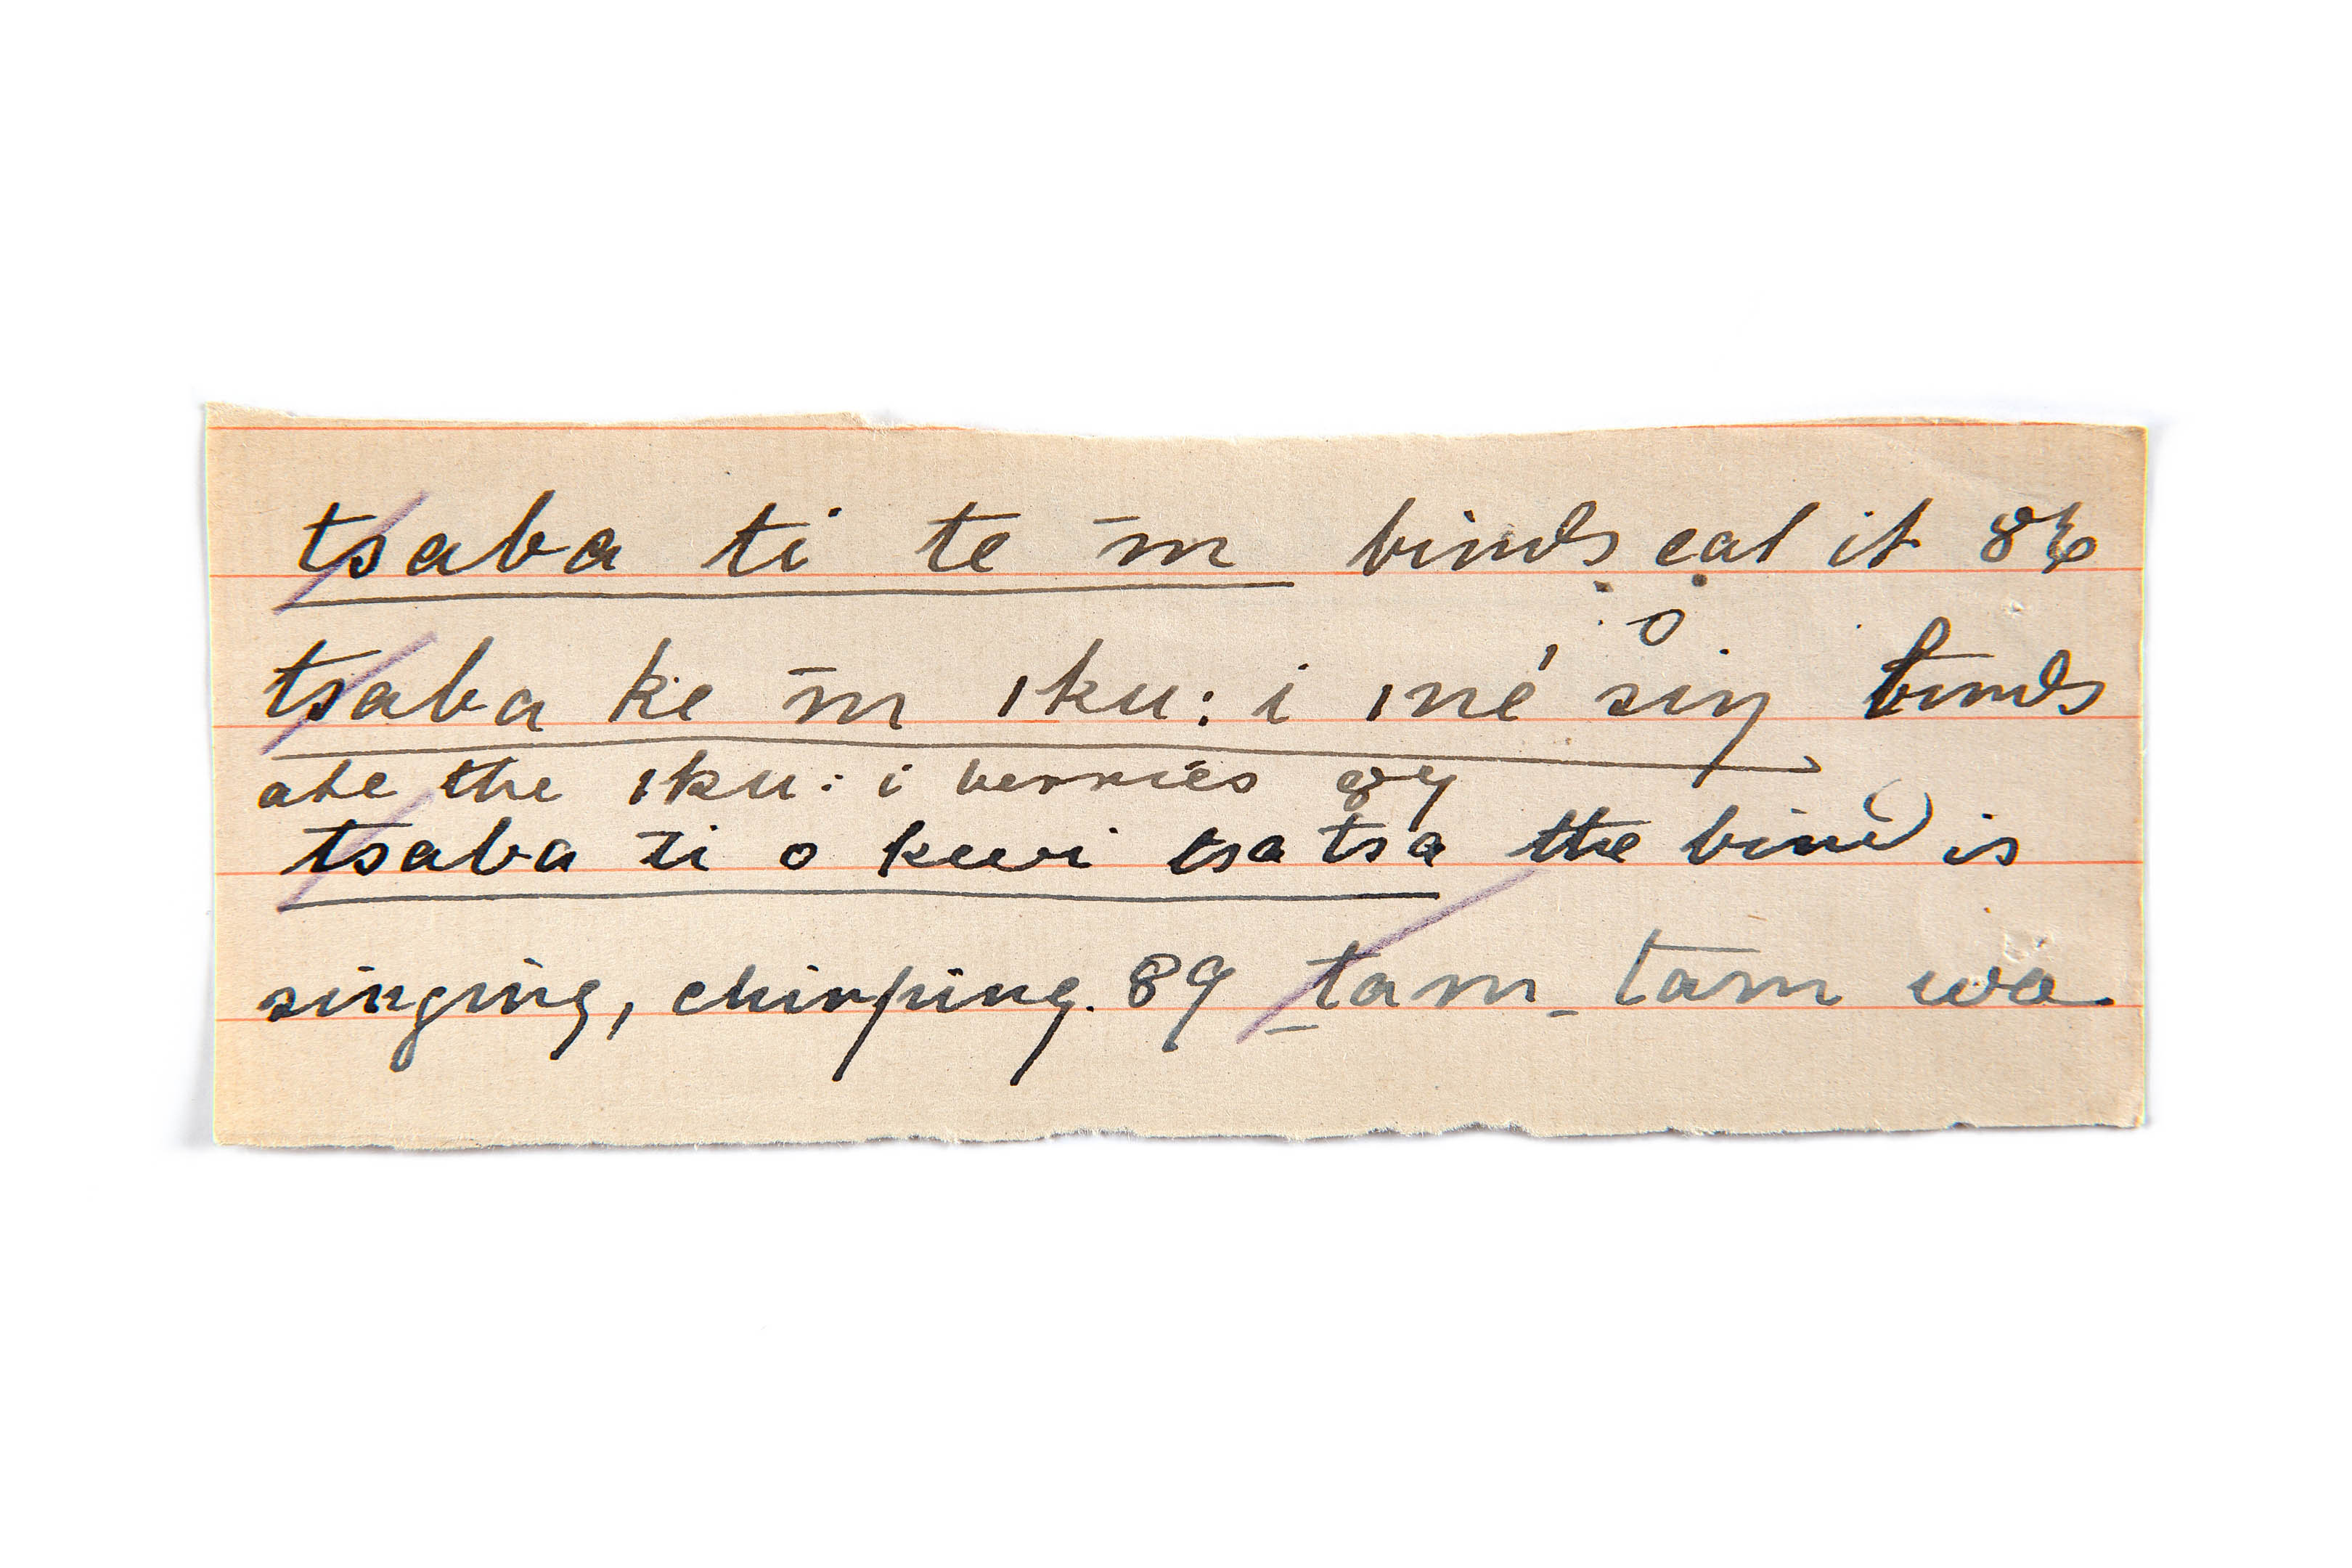 tsaba ti te m̄ birds eat it 86
tsaba ke m̄ ıku: i ıné siŋ birds
ate the ıku: i berries 89
tsaba ti o kwi tsa tsa the bird is
singing, chirping. 89 tam tam wa